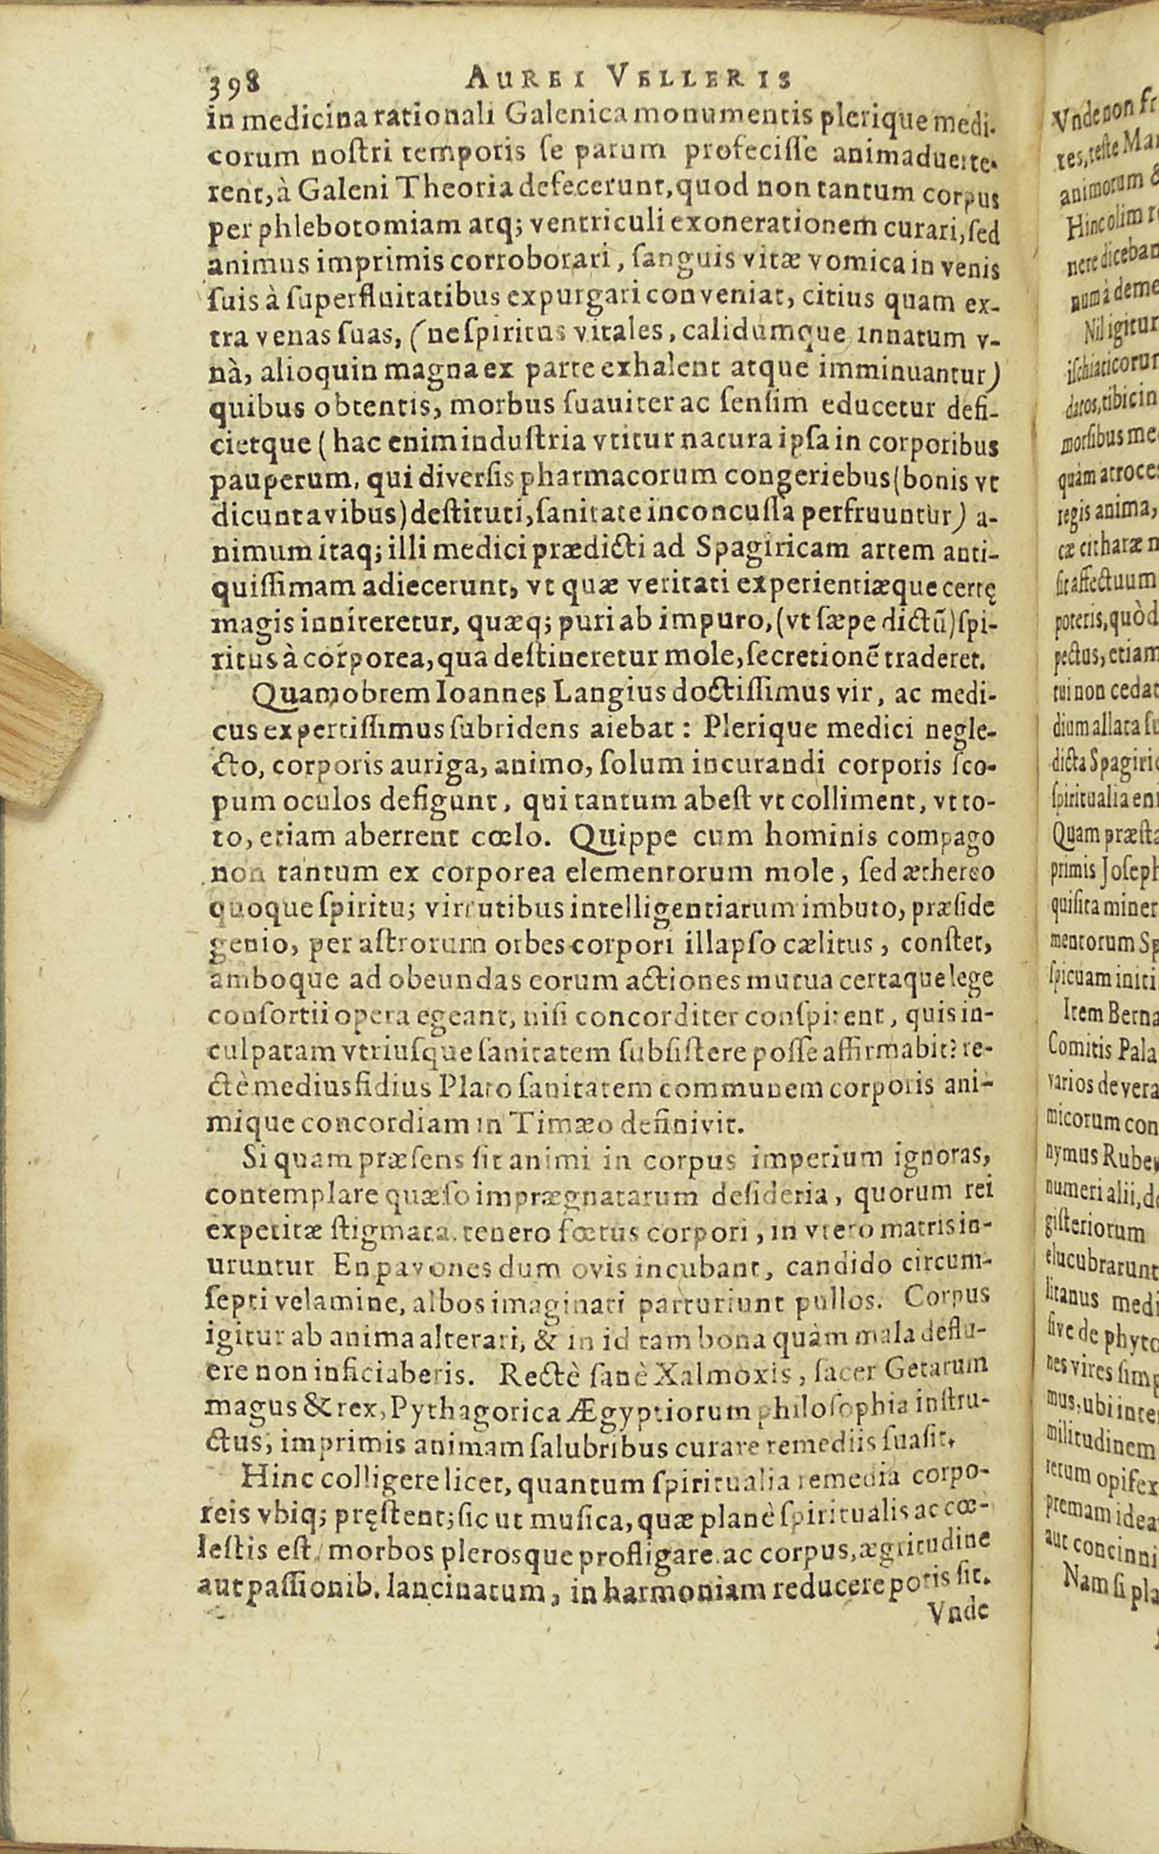 398 AUREI VELLERIS
in medicina rationali Galenica monumentis plerique medi-
corum noſtri temporis ſe parum profeciſſe animaduerte-
rent, à Galeni Theoria defecerunt, quod non tantum corpus
per phlebotomiam atq; ventriculi exonerationem curari, ſed
animus imprimis corroborari, ſanguis vitæ vomica in venis
ſuis à ſuperfluitatibus expurgari conveniat, citius quam ex-
tra venas ſuas, (ne ſpiritus vitales, calidumque innatum v-
nà, alioquin magna ex parte exhalent atque imminuantur)
quibus obtentis, morbus ſuaviter ac ſenſim educetur defi-
cietque (hac enim induſtria vtitur natura ipſa in corporibus
pauperum, qui diverſis pharmacorum congeriebus (bonis vt
dicunt avibus) deſtituti, ſanitate inconcuſſa perfruuntur) a-
nimum itaq; illi medici prædicti ad Spagiricam artem anti-
quiſſimam adiecerunt, vt quæ veritati experientiæque certę
magis inniteretur, quæq; puri ab impuro, (vt ſæpe dictũ) ſpi-
ritus à corporea, qua deſtineretur mole, ſecretionẽ traderet.
Quamobrem Ioannes Langius doctiſſimus vir, ac medi-
cus expertiſſimus ſubridens aiebat: Plerique medici negle-
cto, corporis auriga, animo, ſolum in curandi corporis ſco-
pum oculos defigunt, qui tantum abeſt vt colliment, vt to-
to, etiam aberrent cœlo. Quippe cum hominis compago
non tantum ex corporea elementorum mole, ſed æthereo
quoque ſpiritu; virtutibus intelligentiarum imbuto, præſide
genio, per aſtrorum orbes corpori illapſo cælitus, conſtet,
amboque ad obeundas eorum actiones mutua certaque lege
conſortii opera egeant, niſi concorditer conſpirent, quis in-
culpatam vtriuſque ſanitatem ſubſiſtere poſſe affirmabit? re-
ctè mediusfidius Plato ſanitatem communem corporis ani-
mique concordiam in Timæo definivit.
Si quam præſens ſit animi in corpus imperium ignoras,
contemplare quæſo imprægnatarum deſideria, quorum rei
expetitæ ſtigmata tenero fœtus corpori, in vtero matris in-
uruntur En pavones dum ovis incubant, candido circum-
ſepti velamine, albos imaginati parturiunt pullos. Corpus
igitur ab anima alterari, & in id tam bona quàm mala deflu-
ere non inficiaberis. Rectè ſanè Xalmoxis, ſacer Getarum
magus & rex, Pythagorica Ægyptiorum philoſophia inſtru-
ctus, imprimis animam ſalubribus curare remediis ſuaſit.
Hinc colligere licet, quantum ſpiritualia remedia corpo-
reis vbiq; pręſtent; ſic ut muſica, quæ planè ſpiritualis ac cœ-
leſtis eſt, morbos pleroſque profligare ac corpus, ægritudine
aut paſſionib. lancinatum, in harmoniam reducere potis ſit.
Vnde
Vnde non
tes, teſte
animorum &
Hinc olim
nere
num à
Nil igitur
iſchiaticorum
tibicin
morſibus
quàm
regis anima,
cæ citharæ
ſit affectuum
poteris, quòd
pectus, etiam
tui non cedat
dium allata
dicta
ſpiritualia
Quam
primis
quiſita
mentorum
ſpicuam
Item
Comitis
varios de vera
micorum
nymus
numeri alii,
giſteriorum
elucubrarunt
litanus
ſive de
nes vires
mus, ubi
militudinem
rerum opifex
premam
aut
Nam ſi